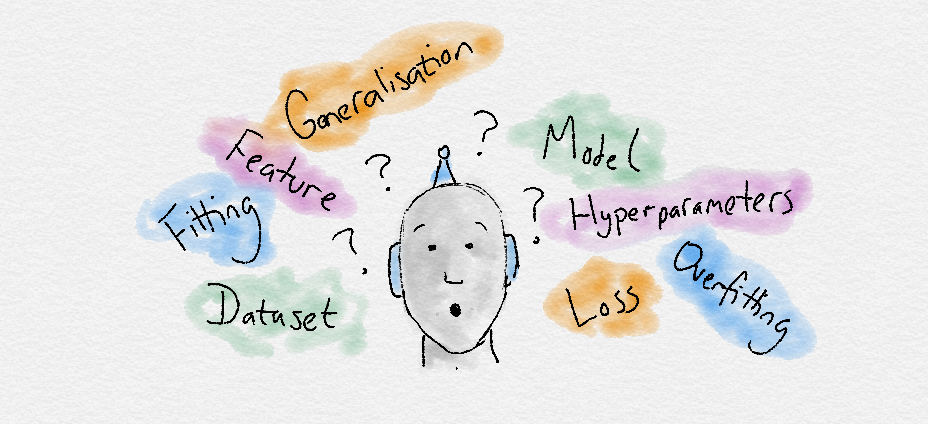 Generalisation
Feature
Fitting
Dataset
?
?
?
?
Model
Hyperparameters
Overfitting
Loss